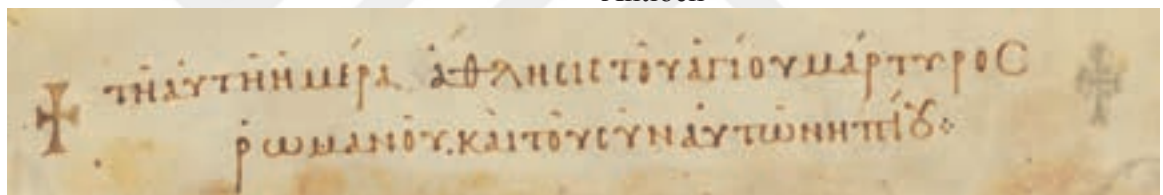 ✝ τῆ αὐτῆ ἡμέρα ἄθλησις τοῦ ἁγίου μάρτυρος
ῥωμανοῦ. καὶ τοῦ σὺν αὐτῶ νηπίȣ